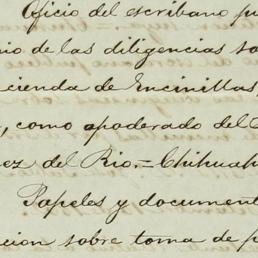 Oficio del escribano pu
io de las diligencias so
cienda de Encinillas,
, como apoderado del C
ez del Rio.=Chihuah
Papeles y document
cion sobre toma de p